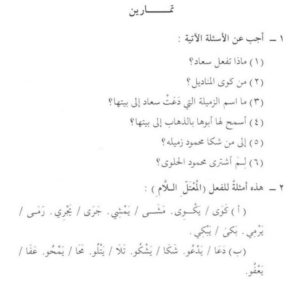 تمـــــاريـن
١ ــ أجب عن الأسئلة الآتية :
(١) ماذا تفعل سعاد؟
(٢) من كوى المناديل؟
(٣) ما اسم الزميلة التي دَعَتْ سعاد إلى بيتها؟
(٤) أسمح لها أبوها بالذهاب إلى بيتها؟
(٥) إلى من شكا محمود زميله؟
(٦) لِمَ اشترى محمود الحلوى؟
٢ ــ هذه أمثلةٌ للفعل (المُعْتَلّ اللّام) :
(أ) كَوَى / يَكْوِى. مَشَى / يَمْشِي. جَرَى / يَجْرِي. رَمَى /
يَرْمِي. بَكَى / يَبْكِي.
(ب) دَعَا / يَدْعُو. شَكَا / يَشْكُو. تَلَا / يَتْلُو. مَحَا / يَمْحُو. عَفَا /
يَعْفُو.